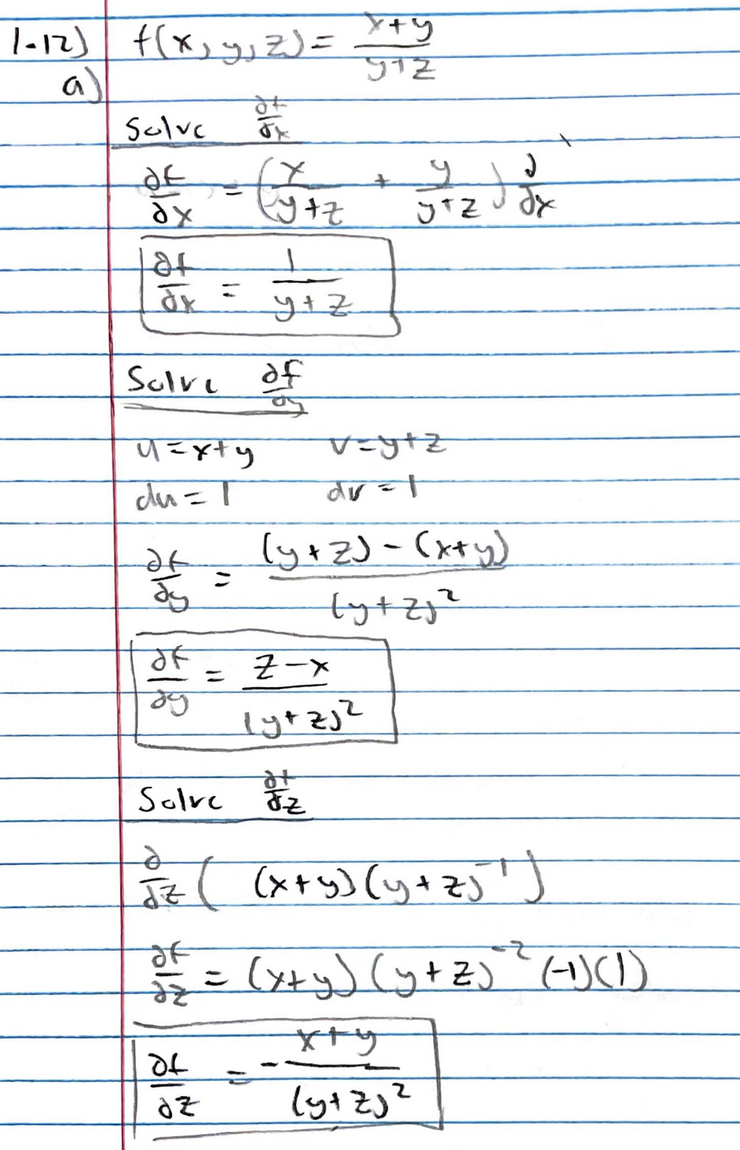 1-12) f(x,y,z) = (x+y)/(y+z)
a)
Solve ∂f/∂x
∂f/∂x = (x/(y+z) + y/(y+z)) ∂/∂x
∂f/∂x = 1/(y+z)
Solve ∂f/∂y
u=x+y v=y+z
du=1 dv=1
∂f/∂y = ((y+z)-(x+y))/(y+z)²
∂f/∂y = (z-x)/(y+z)²
Solve ∂f/∂z
∂/∂z ((x+y)(y+z)⁻¹)
∂f/∂z = (x+y)(y+z)⁻²(-1)(1)
∂f/∂z = -(x+y)/(y+z)²